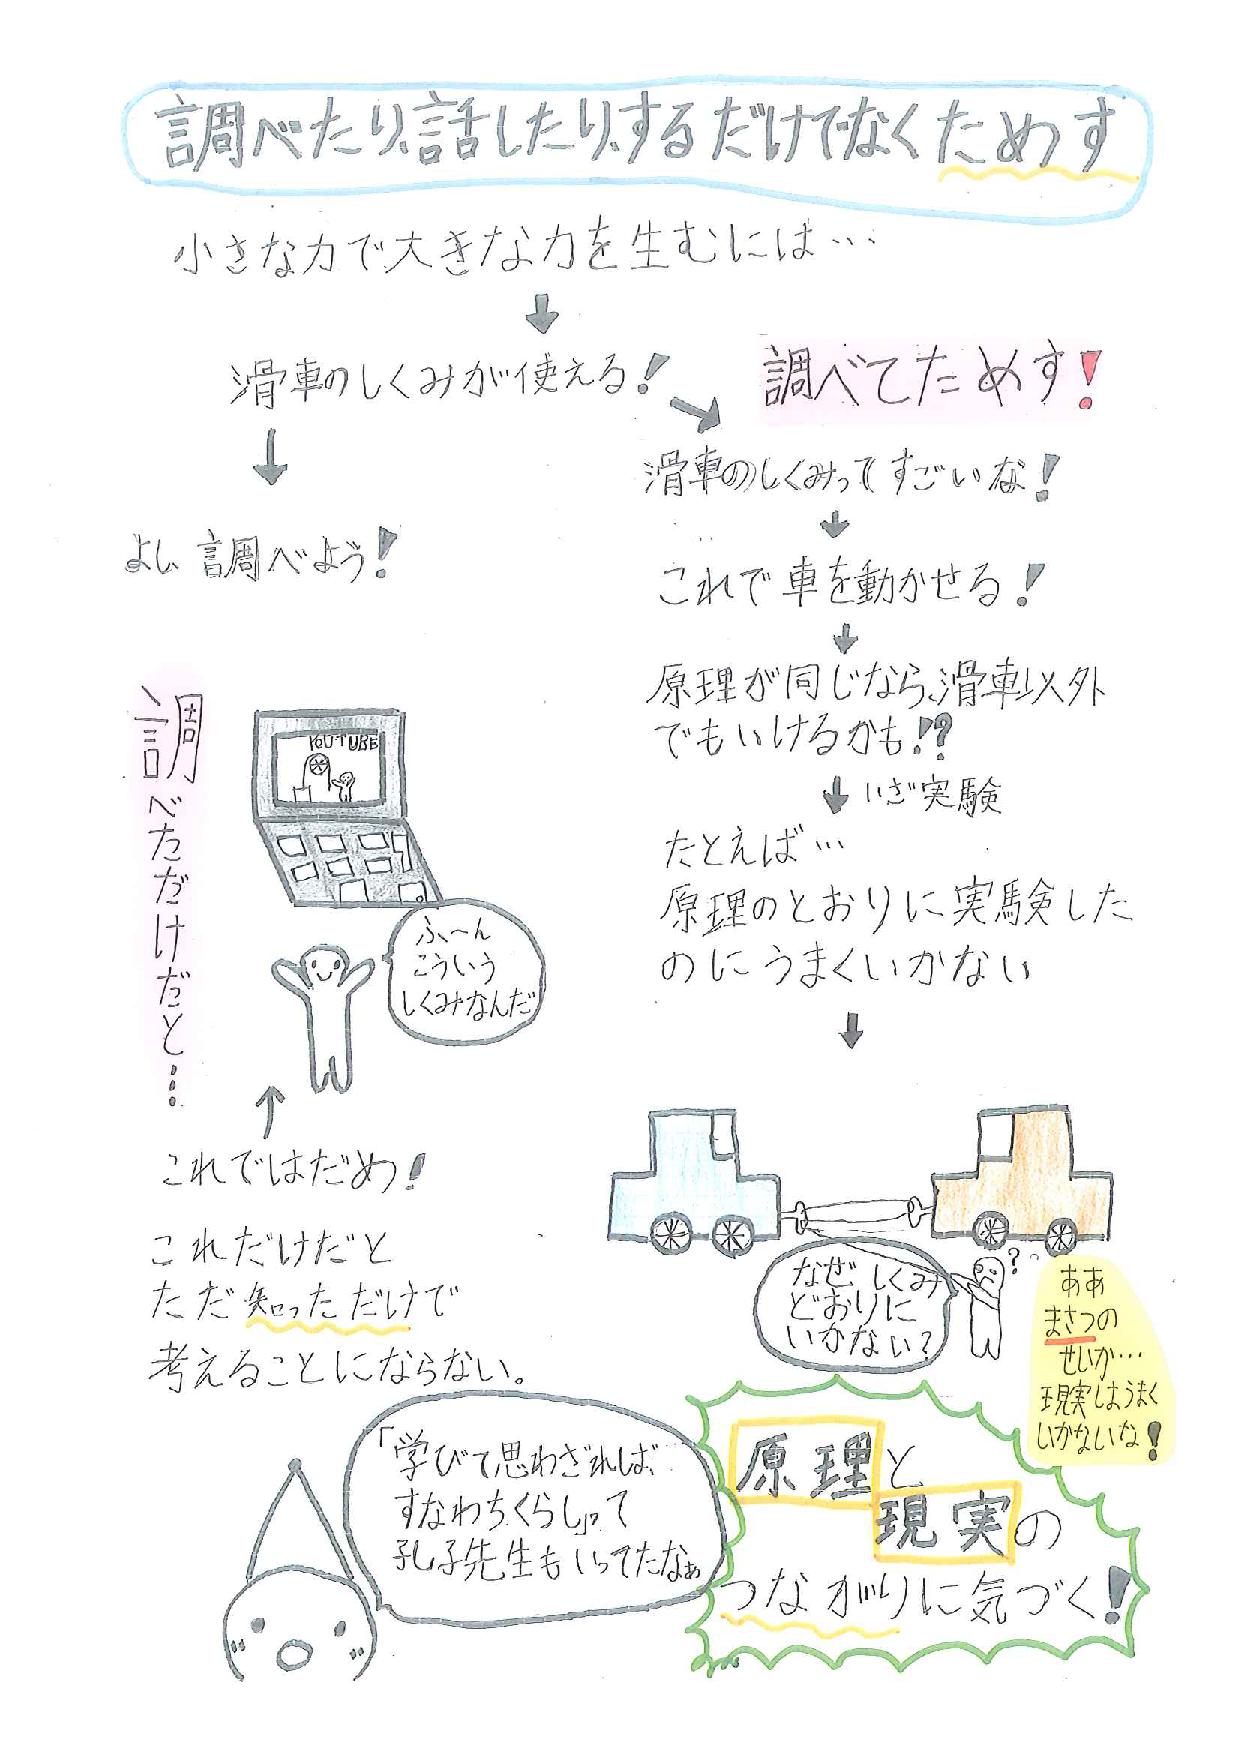 調べたり、話したり、するだけでなくためす
小さな力で大きな力を生むには…
滑車のしくみが使える!
よし、調べよう!
調べただけだと…
YOUTUBE
ふ〜ん
こういう
しくみなんだ
これではだめ!
これだけだと
ただ知っただけで
考えることにならない。
「学びて思わざれば、
すなわちくらし」って
孔子先生もいってたなぁ
調べてためす!
滑車のしくみってすごいな!
これで車を動かせる!
原理が同じなら、滑車以外
でもいけるかも!?
いざ実験
たとえば…
原理のとおりに実験した
のにうまくいかない
なぜしくみ
どおりに
いかない?
?
ああ
まさつの
せいか…
現実はうまく
いかないな!
原理と
現実の
つながりに気づく!